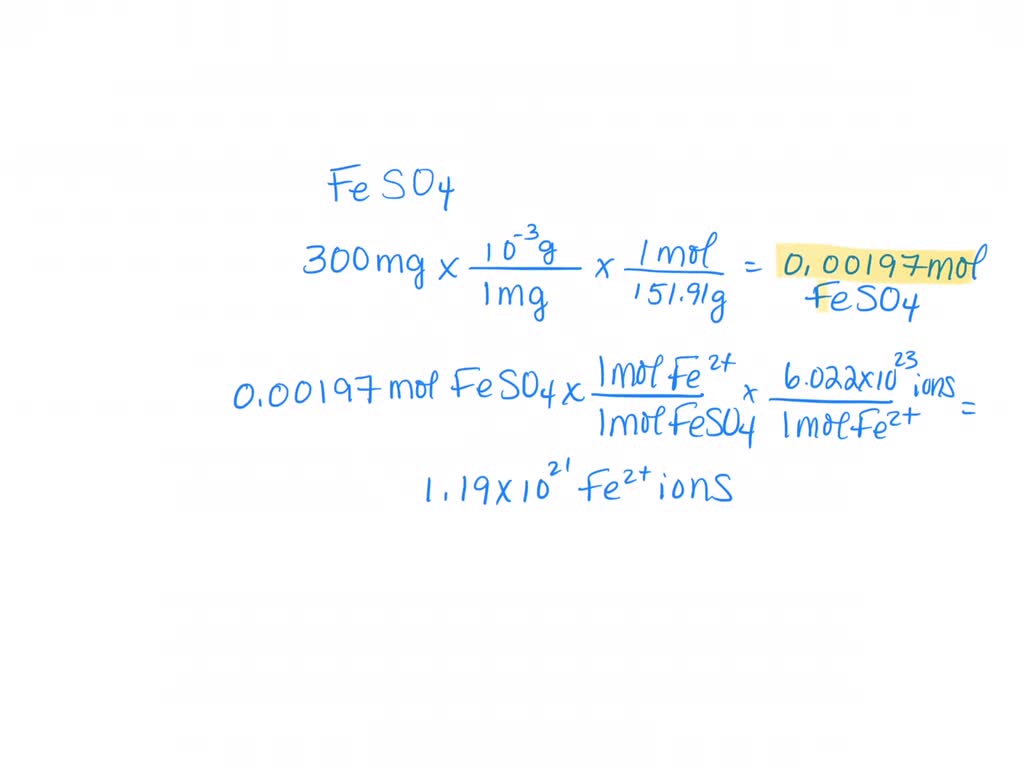 FeSO₄
300mg x 10⁻³g / 1mg x 1mol / 151.91g = 0.00197mol
FeSO₄
0.00197 mol FeSO₄ x 1molFe²⁺ / 1molFeSO₄ x 6.022x10²³ ions / 1molFe²⁺ =
1.19x10²¹ Fe²⁺ ions